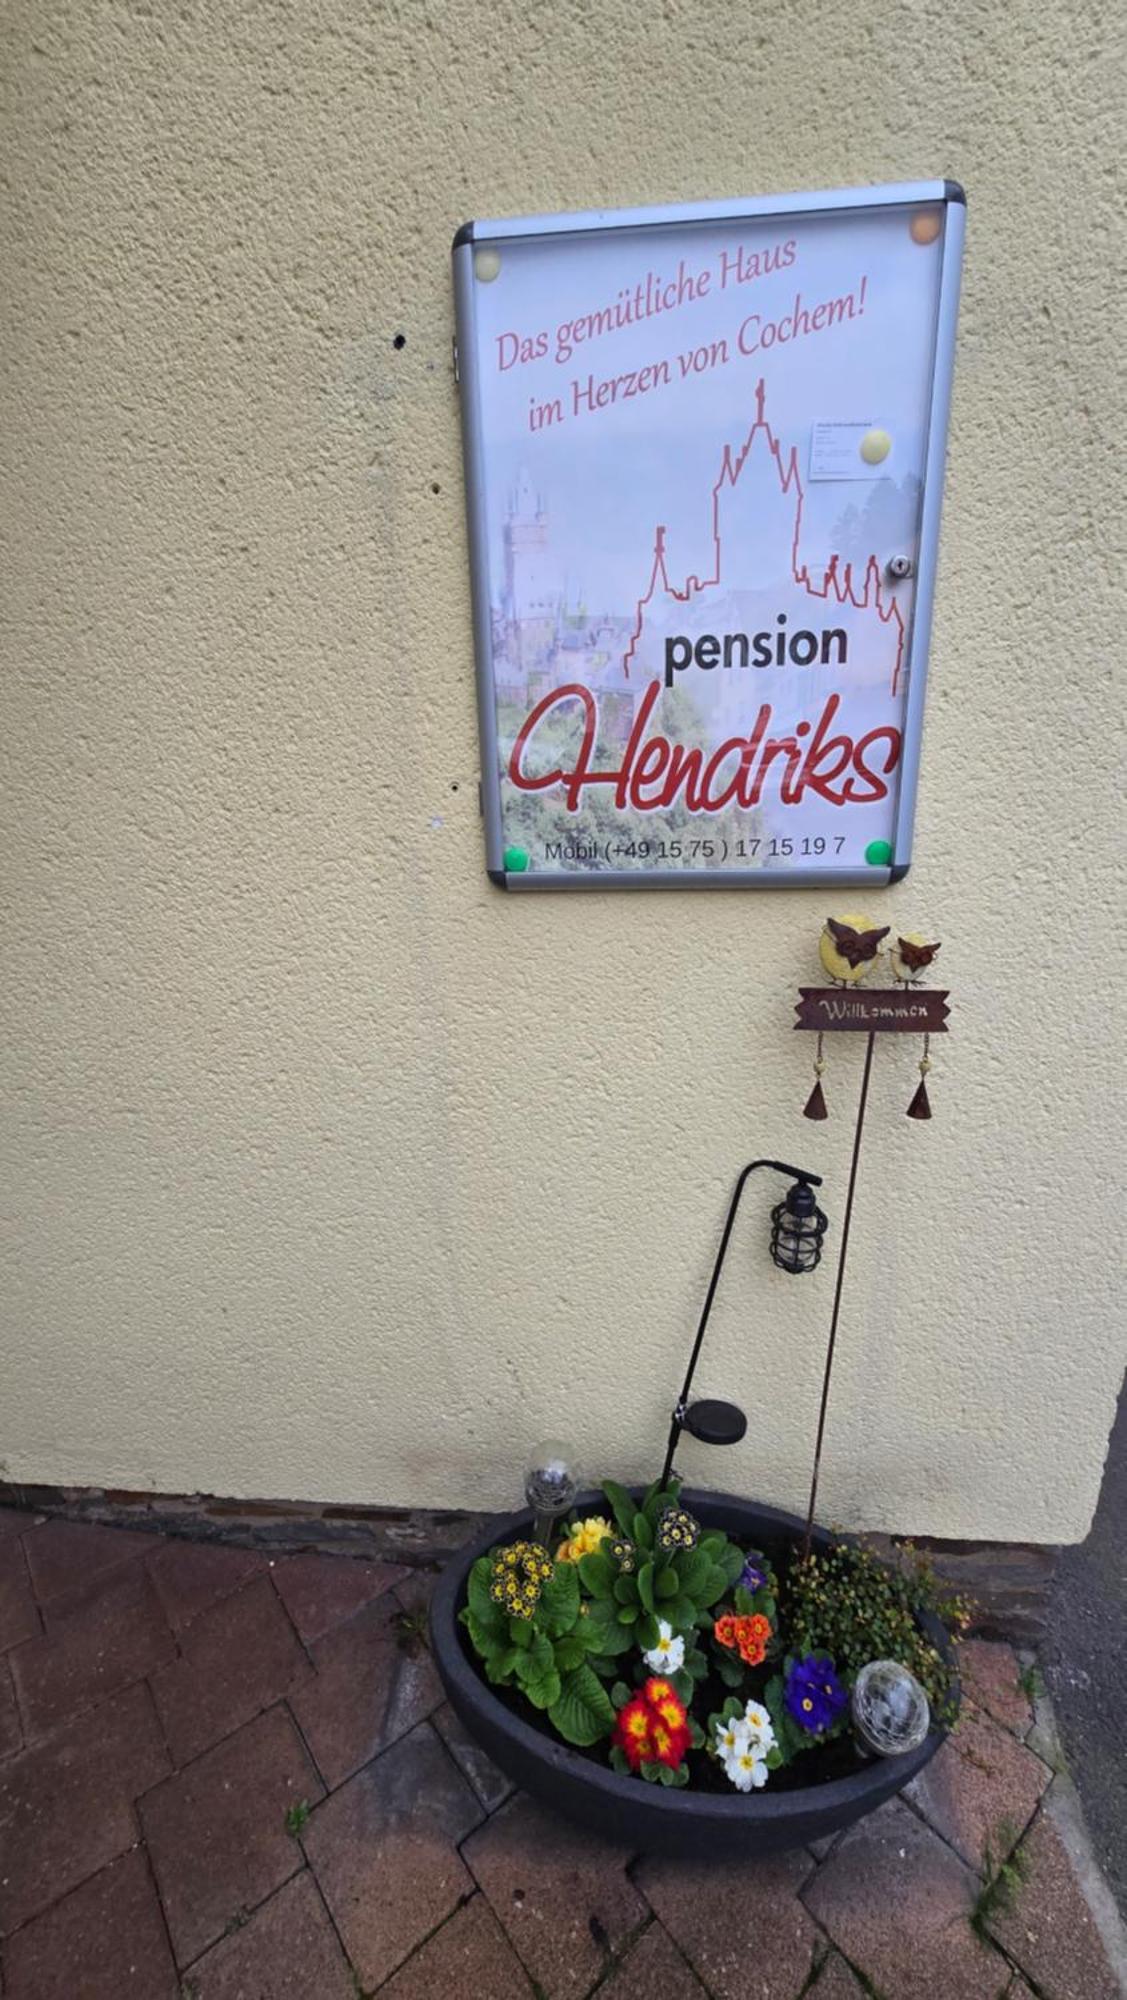 Das gemütliche Haus
im Herzen von Cochem!
pension
Hendriks
Mobil (+49 15 75 ) 17 15 19 7
Willkommen